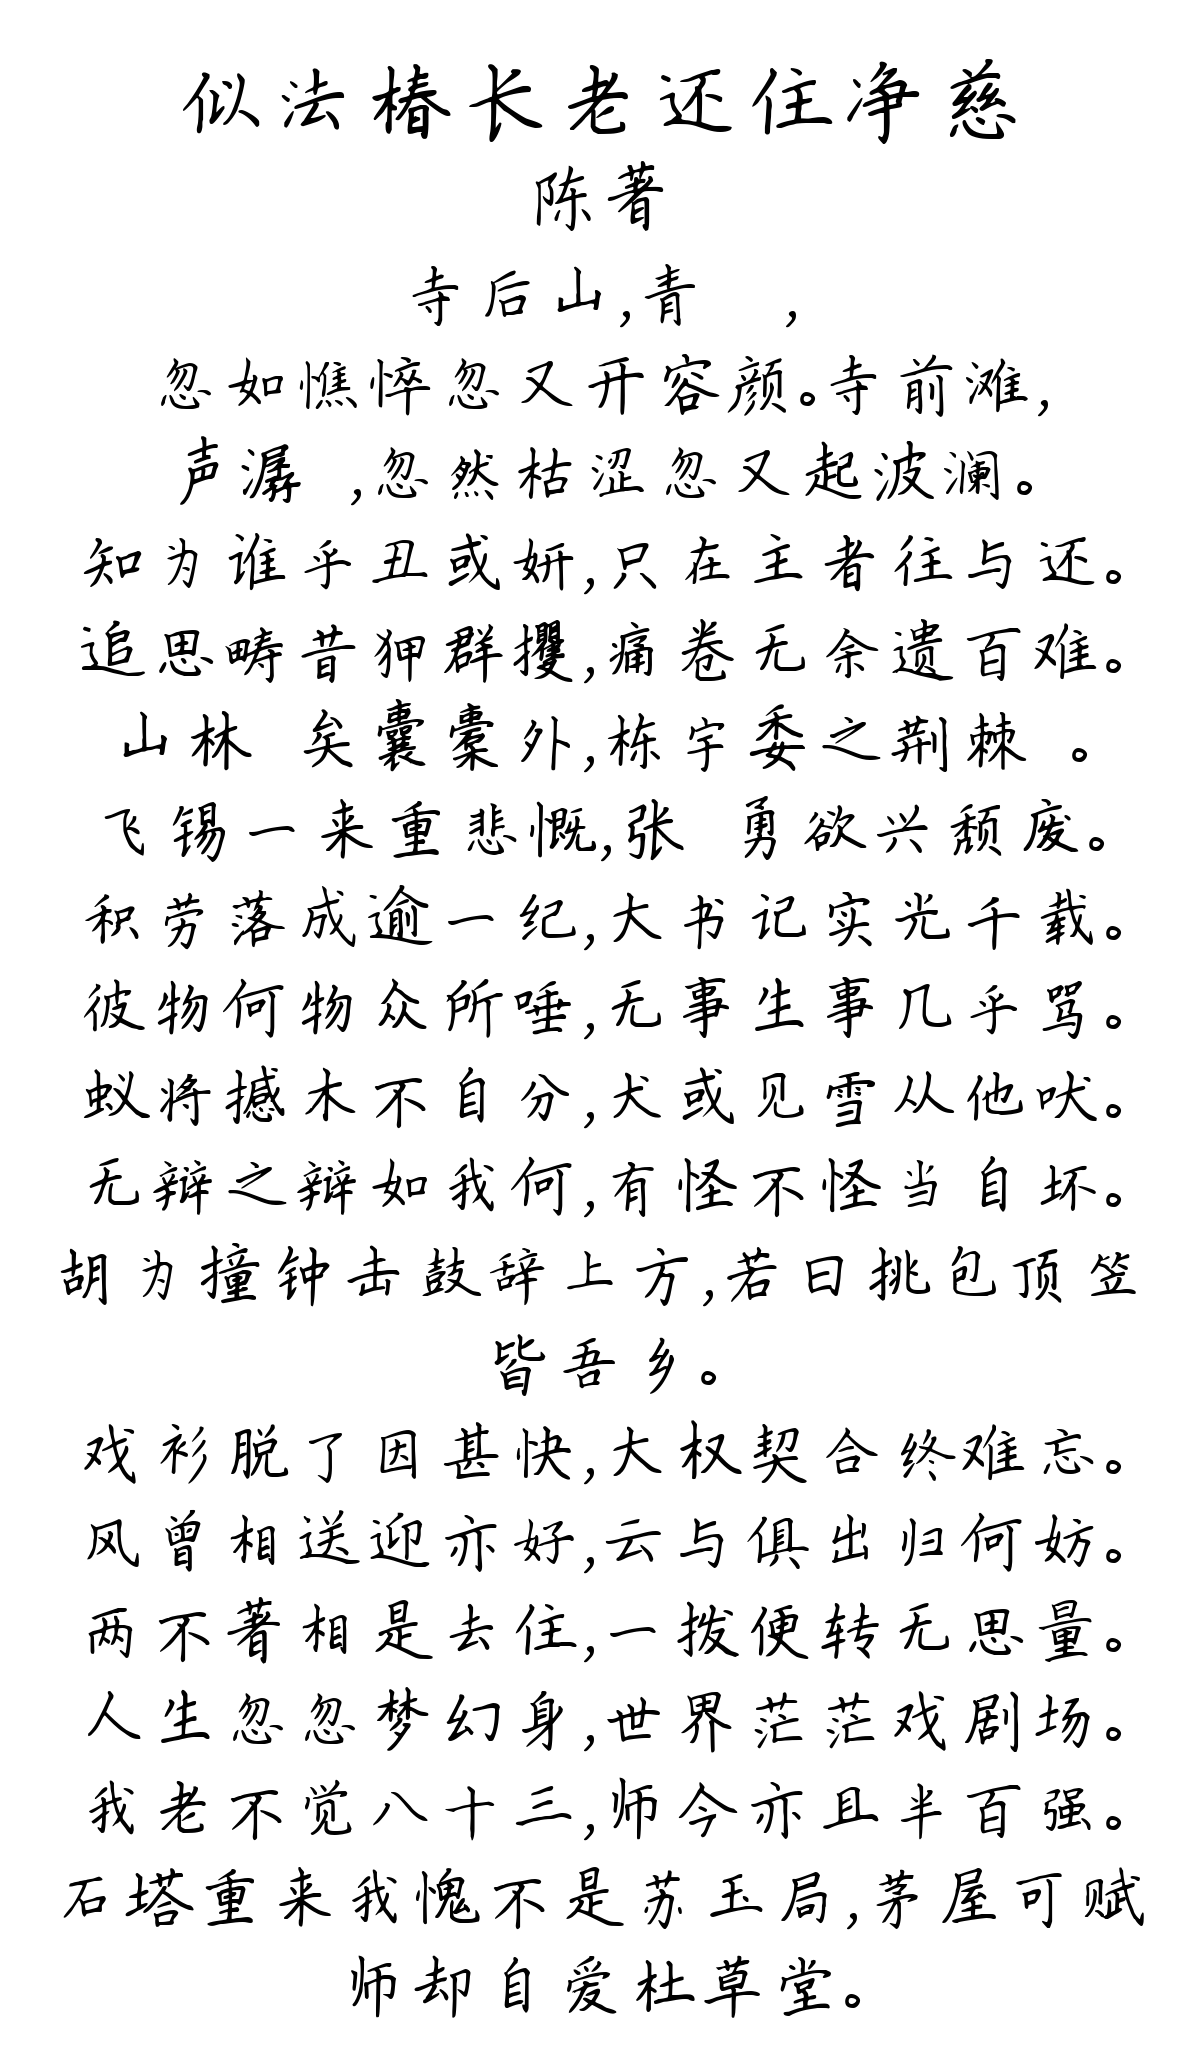 似法椿长老还住净慈
陈著
寺后山,青 ,
忽如憔悴忽又开容颜。寺前滩,
声潺 ,忽然枯涩忽又起波澜。
知为谁乎丑或妍,只在主者往与还。
追思畴昔狎群攫,痛卷无余遗百难。
山林 矣囊橐外,栋宇委之荆棘 。
飞锡一来重悲慨,张 勇欲兴颓废。
积劳落成逾一纪,大书记实光千载。
彼物何物众所唾,无事生事几乎骂。
蚁将撼木不自分,犬或见雪从他吠。
无辩之辩如我何,有怪不怪当自坏。
胡为撞钟击鼓辞上方,若曰挑包顶笠
皆吾乡。
戏衫脱了因甚快,大权契合终难忘。
风曾相送迎亦好,云与俱出归何妨。
两不著相是去住,一拨便转无思量。
人生忽忽梦幻身,世界茫茫戏剧场。
我老不觉八十三,师今亦且半百强。
石塔重来我愧不是苏玉局,茅屋可赋
师却自爱杜草堂。